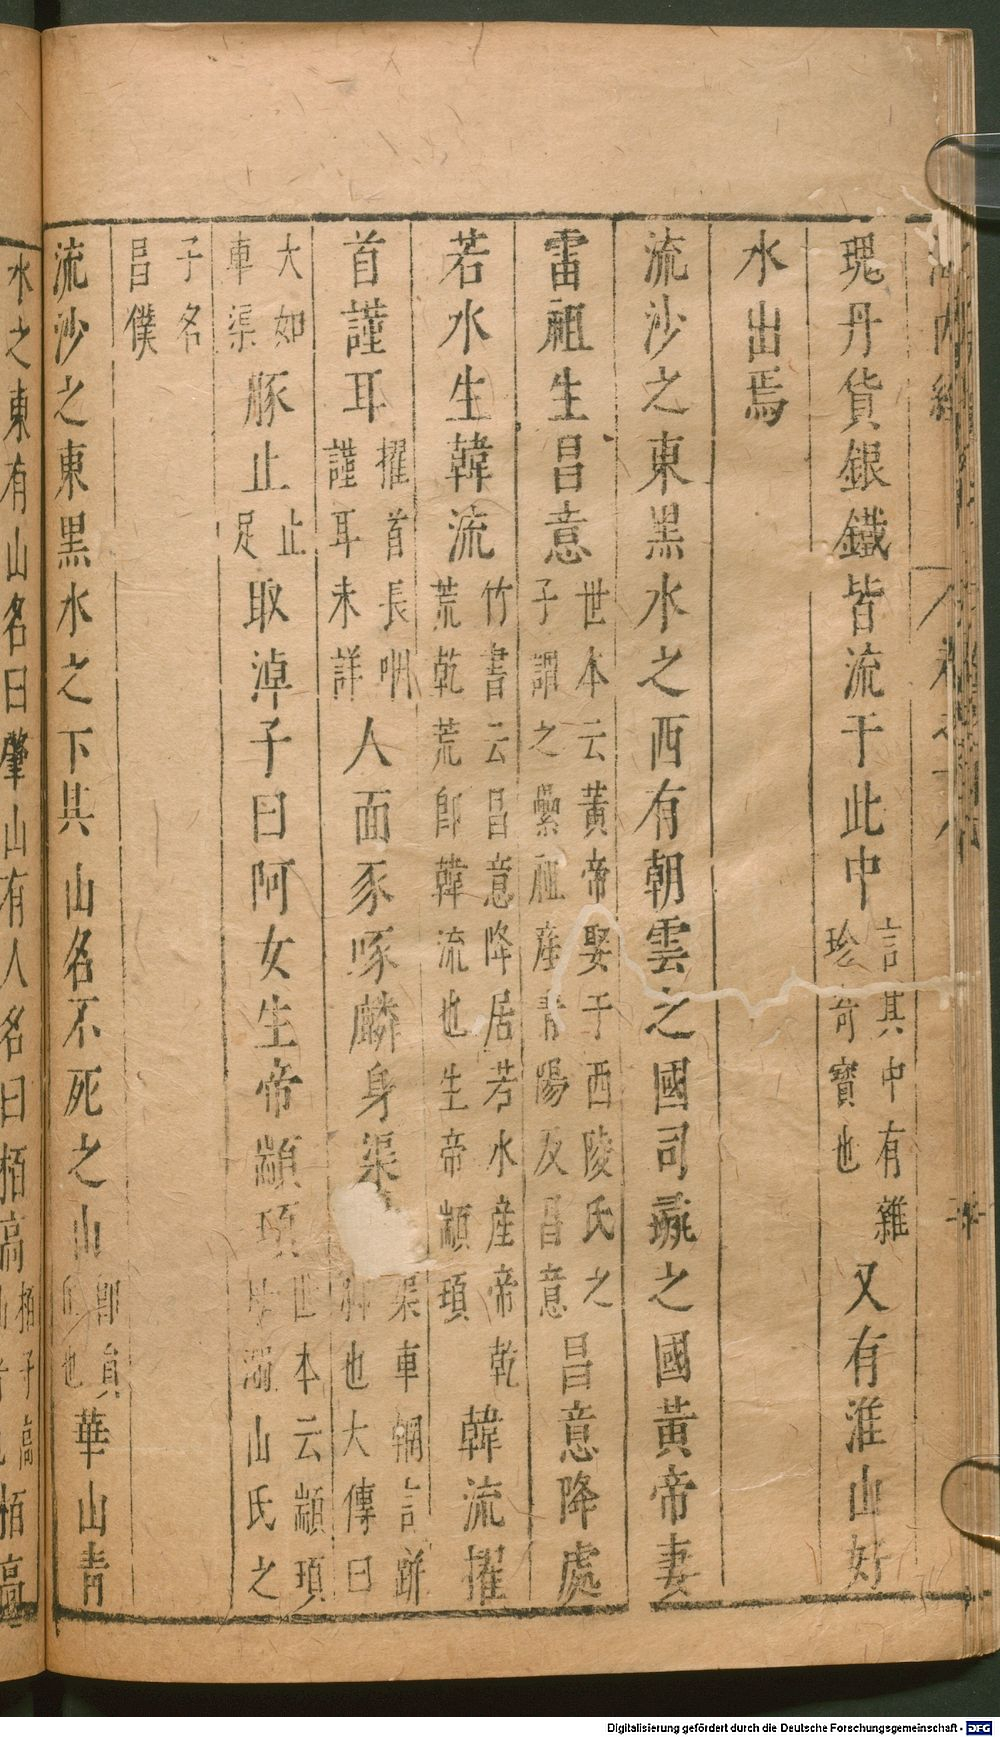 海內經
卷之十八
瑰丹貨銀鐵皆流于此中言其中有雜珍奇寶也又有淮山好
水出焉
流沙之東黑水之西有朝雲之國司彘之國黃帝妻
雷祖生昌意世本云黃帝娶于西陵氏之子謂之纍祖產青陽及昌意昌意降處
若水生韓流竹書云昌意降居若水產帝乾荒乾荒即韓流也生帝顓頊韓流擢
首謹耳擢首長咽謹耳未詳人面豕喙麟身渠渠車輞言跰也大傳曰
大如車渠豚止止足取淖子曰阿女生帝顓頊世本云顓頊山氏之
子名昌僕
流沙之東黑水之下其山名不死之山即員也華山青
水之東有山名曰肇山有人名曰栢高栢子高栢高
Digitalisierung gefördert durch die Deutsche Forschungsgemeinschaft - DFG